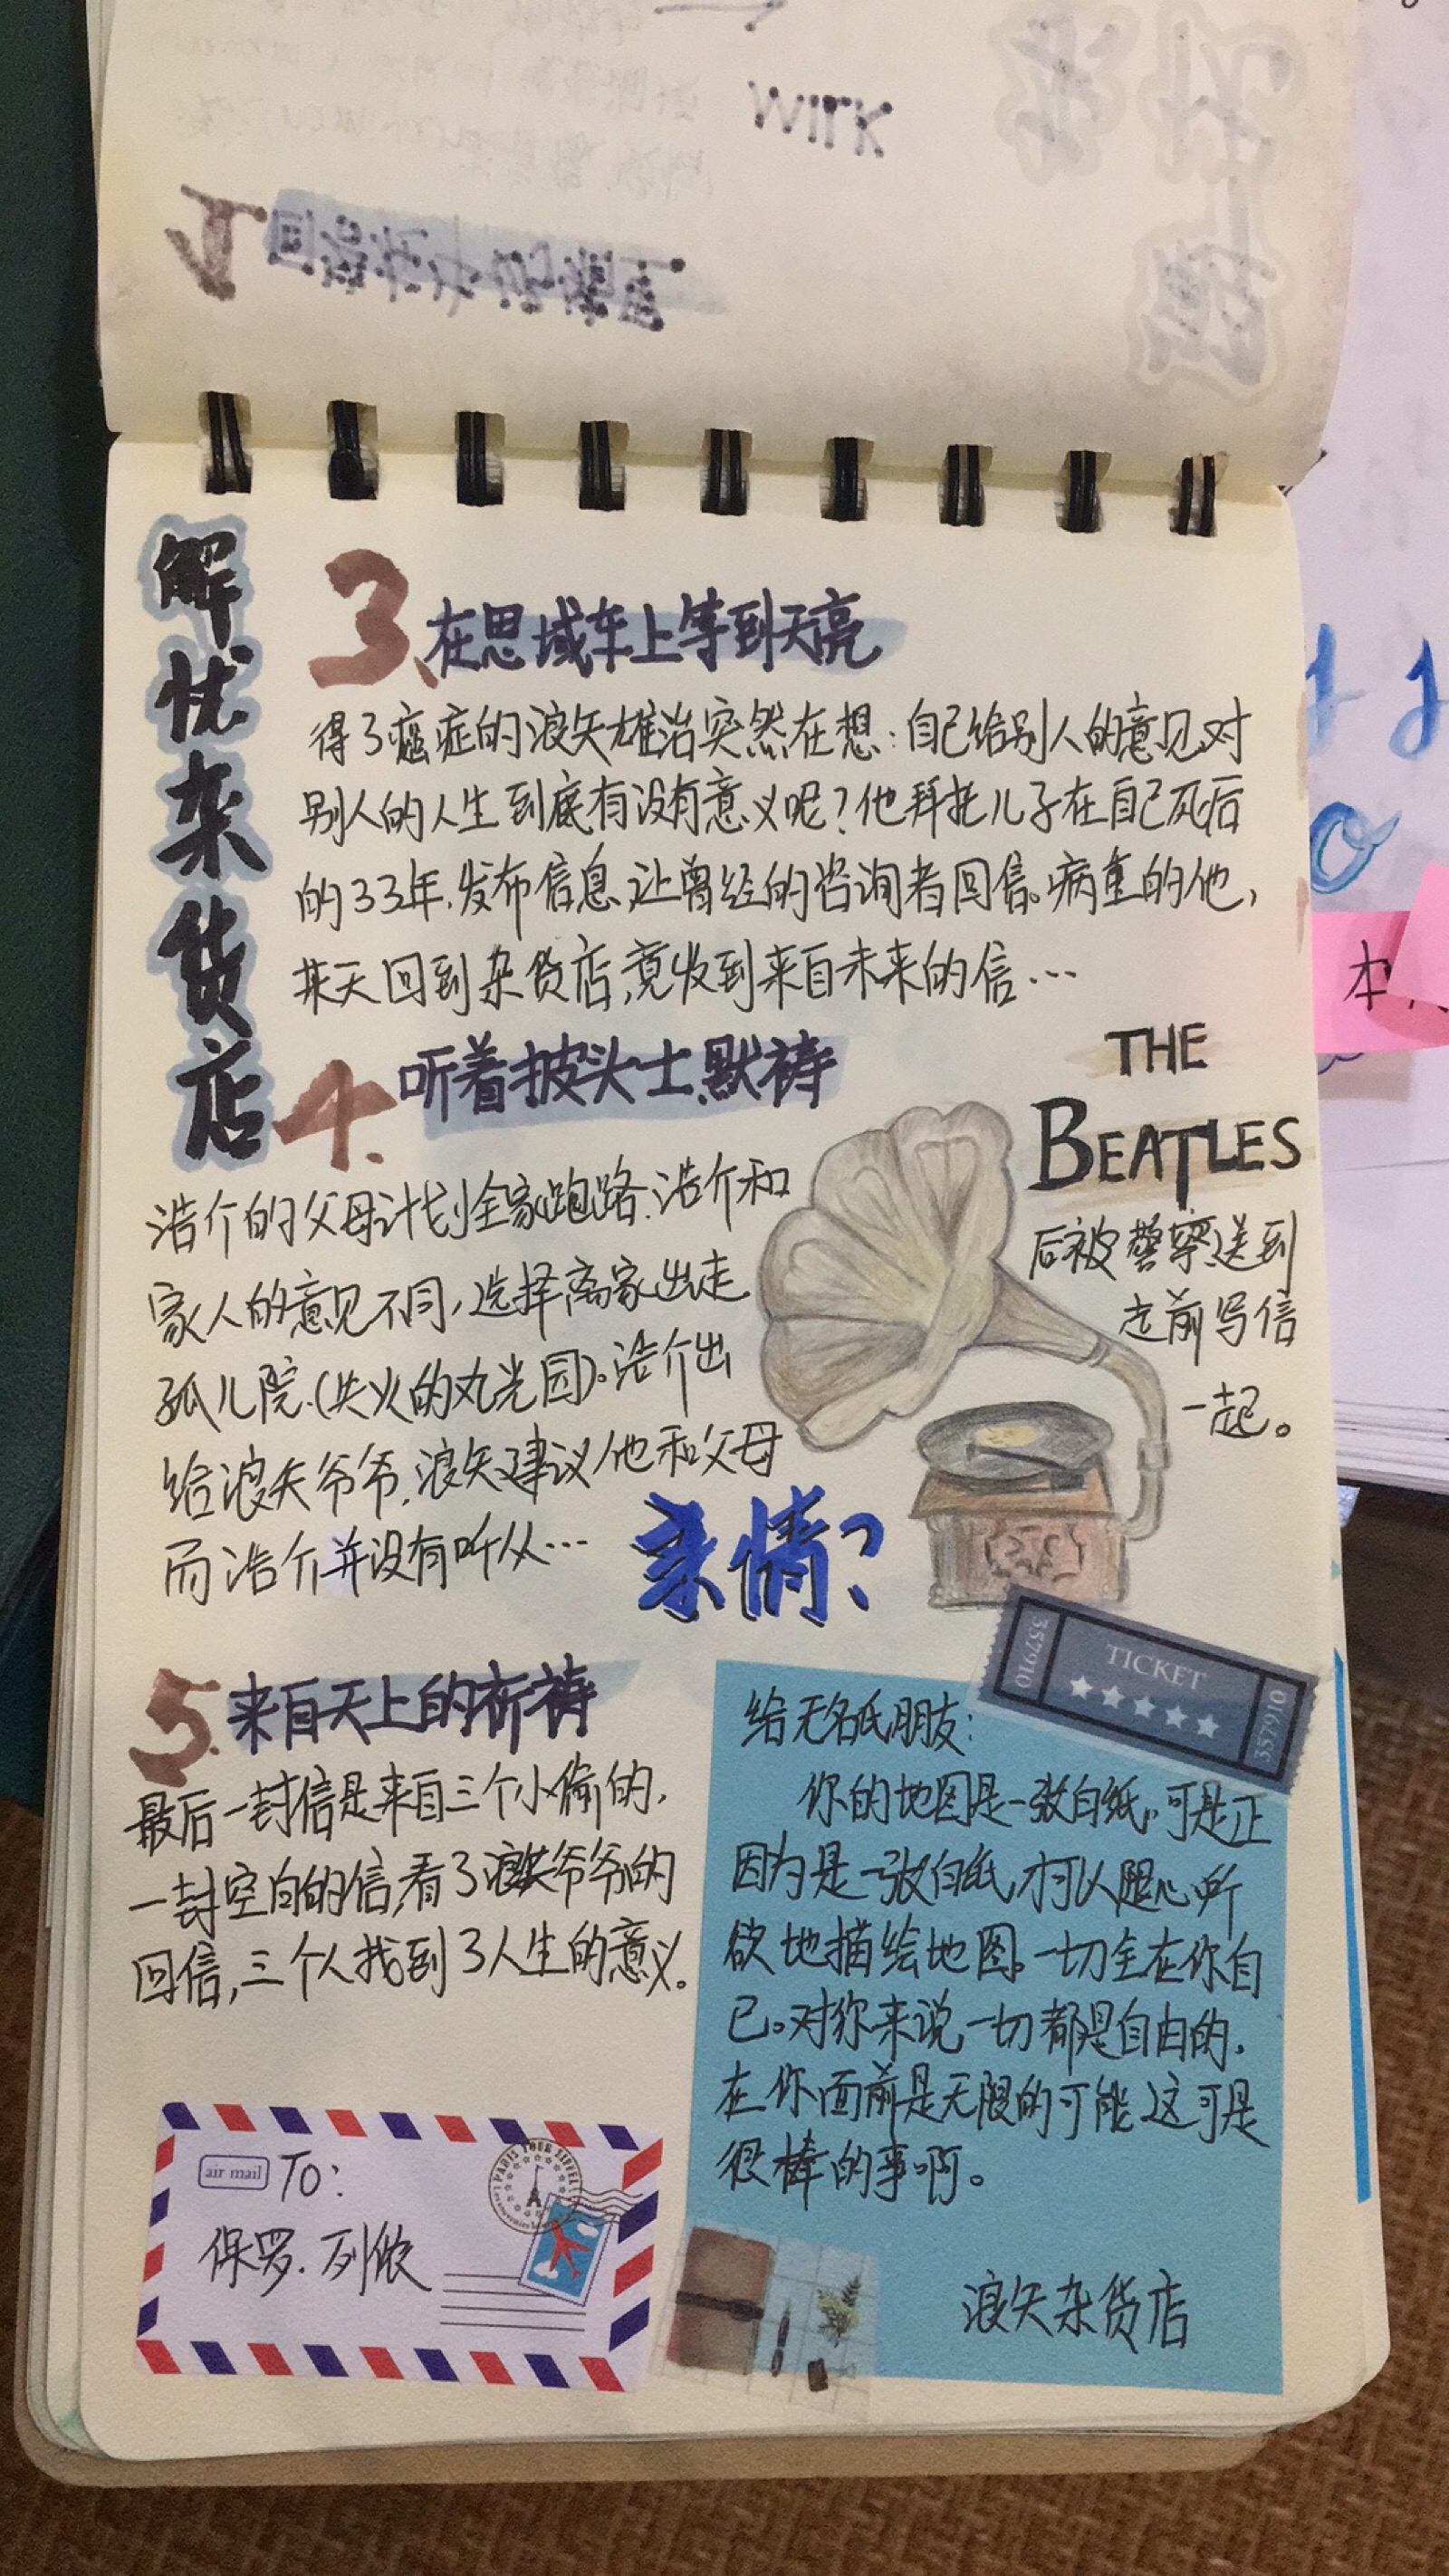 解忧杂货店
3、在思域车上等到天亮
得了癌症的浪矢雄治突然在想:自己给别人的意见,对
别人的人生到底有没有意义呢?他拜托儿子在自己死后
的33年,发布信息,让曾经的咨询者回信。病重的他,
某天回到杂货店,竟收到来自未来的信…
4.听着披头士默祷
THE
BEATLES
浩介的父母计划全家跑路.浩介和
家人的意见不同,选择离家出走 后被警察送到
孤儿院.(失火的丸光园)。浩介出 走前写信
给浪矢爷爷,浪矢建议他和父母 一起。
而浩介并没有听从…
亲情?
5.来自天上的祈祷
最后一封信是来自三个小偷的,
一封空白的信,看了浪矢爷爷的
回信,三个人找到了人生的意义。
TICKET
357910
357910
给无名氏朋友:
你的地图是一张白纸,可是正
因为是一张白纸,才可以随心所
欲地描绘地图。一切全在你自
己。对你来说一切都是自由的,
在你面前是无限的可能,这可是
很棒的事啊。
浪矢杂货店
air mail
To:
保罗.列侬
PARIS TOUR EIFFEL
本